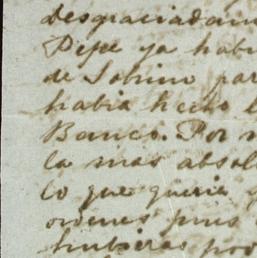 desgraciadam
Pepe ya habi
de Sobrino par
habia hecho l
Banco. Por m
la mas absol
lo que queria
ordenes pues
hubieras pod